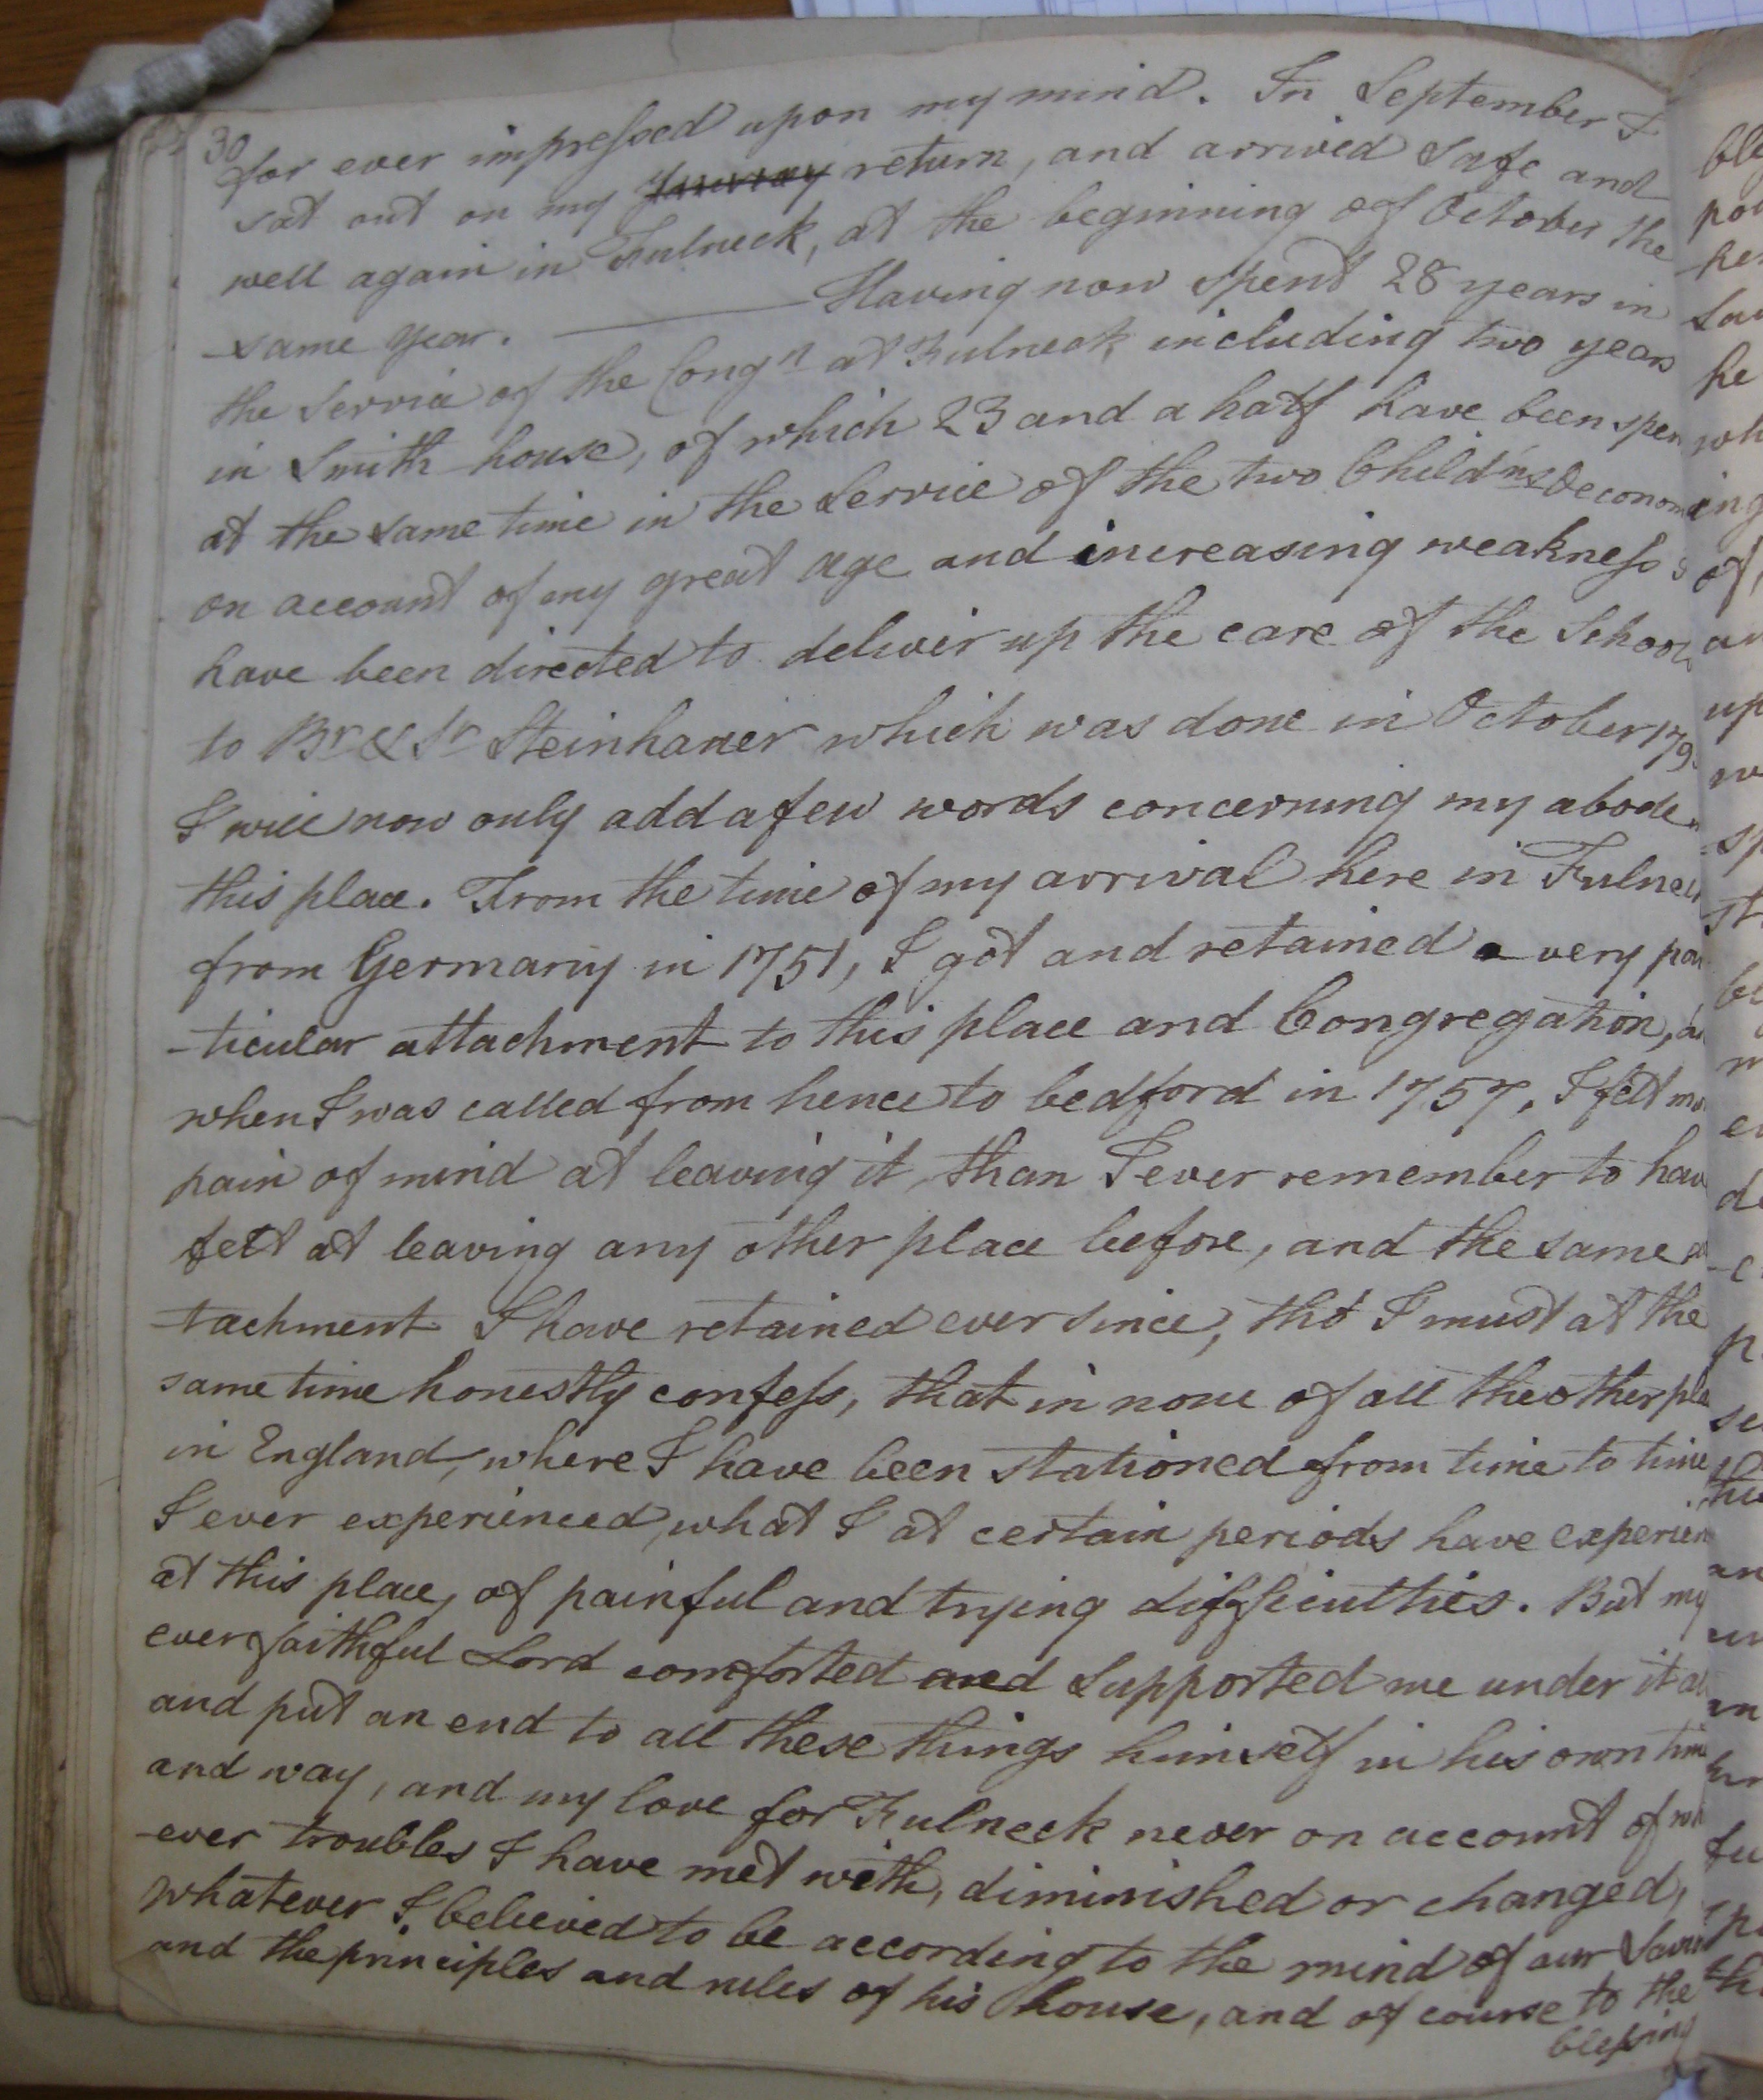 30
for ever impressed upon my mind. In September I
sat out on my return, and arrived safe and
well again in Fulneck, at the beginning of October the
same year. ——— Having now spent 28 years in
the service of the Congn at Fulneck, including two years
in Smith house, of which 23 and a half have been spen
at the same time in the Service of the two Child'ns Oeconom
on account of my great age and increasing weakness
have been directed to deliver up the care of the School
to Br & Sr Steinhauer which was done in October 179
I will now only add a few words concerning my abode
this place. From the time of my arrival here in Fulnec
from Germany in 1751, I got and retained a very par
-ticular attachment to this place and Congregation, a
when I was called from hence to bedford in 1757, I felt mo
pain of mind at leaving it, than I ever remember to hav
felt at leaving any other place before, and the same a
tachment I have retained ever since, tho' I must at the
same time honestly confess, that in none of all the other pla
in England, where I have been stationed from time to time
I ever experienced, what I at certain periods have experien
at this place, of painful and trying difficulties. But my
ever faithful Lord comforted and supported me under it al
and put an end to all these things himself in his own tim
and way, and my love for Fulneck never on account of wh
-ever troubles I have met with, diminished or changed,
whatever I believed to be according to the mind of our Savi
and the principles and rules of his house, and of course to the
blessing